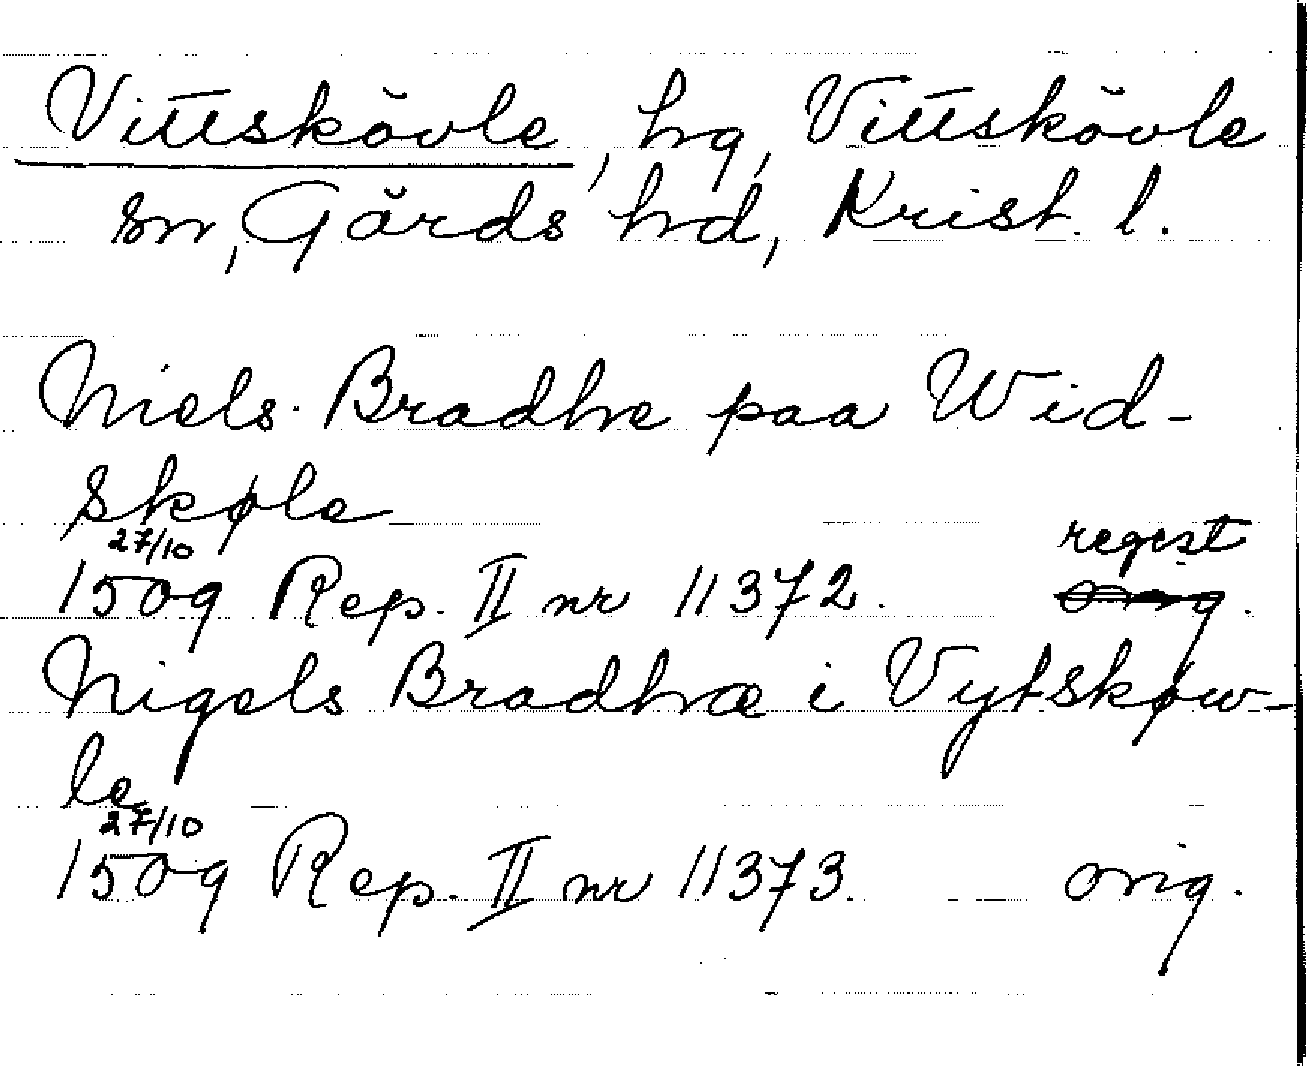 Vittskövle, hg, Vittskövle
sn, Gärds hd, Krist. l.
Niels Bradhe paa Wid-
skøle
27/10
1509 Rep. II nr 11372. regest
orig.
Nigels Bradhæ i Vytskøw-
le
27/10
1509 Rep. II nr 11373. orig.